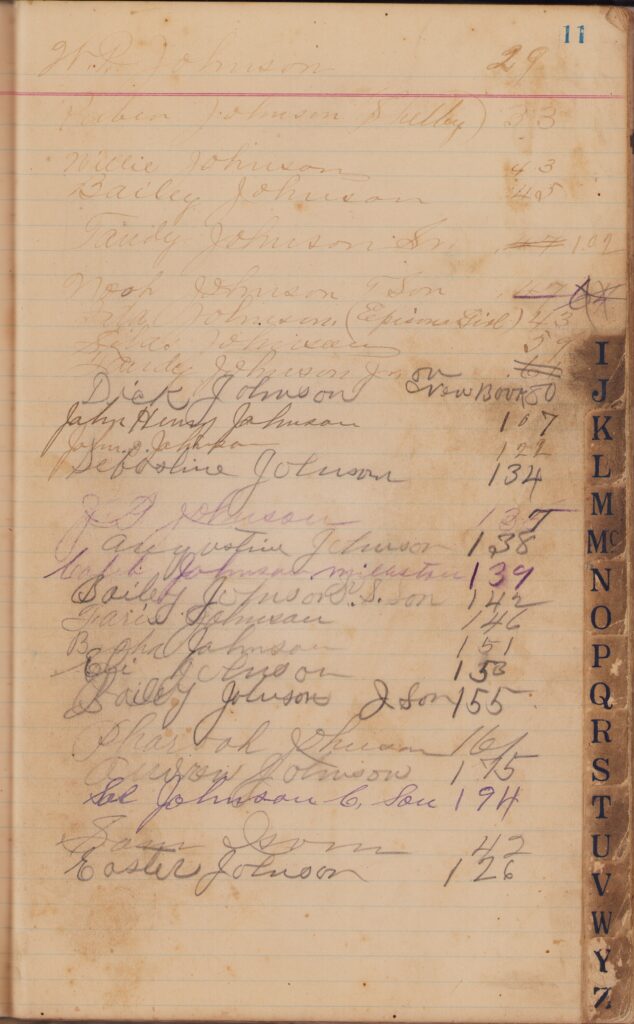 11
W. R. Johnson 29
Johnson Shelby) 33
Willie Johnson 43
Bailey Johnson 45
Tandy Johnson Sr. 47 102
Noah Johnson T Son 47
Johnson. (Girl) 43
Johnson 59
Tandy Johnson Jr
Dick Johnson on New Book 80
John Henry Johnson 107
John. Johnson 122
Sebastine Johnson 134
J D Johnson 137
Augustine Johnson 138
Johnson 139
Bailey Johnson P. S. Son 142
Faris Johnson 146
Johnson 151
Eli Johnson 153
Bailey Johnson J. Son 155
Pharroah Johnson 161
Johnson 175
Sel Johnson C. Son 194
Sam Isom 42
Easter Johnson 126
I
J
K
L
M
Mc
N
O
P
Q
R
S
T
U
V
W
Y
Z